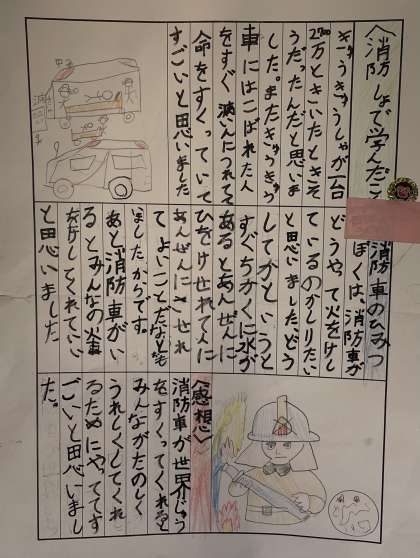 〈消防しょで学んだこ
きゅうきゅうしゃが一台
万ときいたときそ
うだったんだと思いま
した。またきゅうきゅう
車にはこばれた人
をすぐ いんにつれてって
命をすくっていて
すごいと思いました
消防車のひみつ
ぼくは、消防車が
どうやって火をけし
ているのかしりたい
と思いました、どう
してかというと
すぐちかくに水が
あるとあんぜんに
ひをけせれて人に
あんぜんにさせれ
てよいことだなとおも
いましたからです。
あと消防車がい
るとみんなの火事
をけしてくれていい
と思いました
〈感想〉
消防車が世界じゅう
をすくってくれると
みんながたのしく
うれしくしてくれ
るためにやっててす
ごいと思いまし
た。